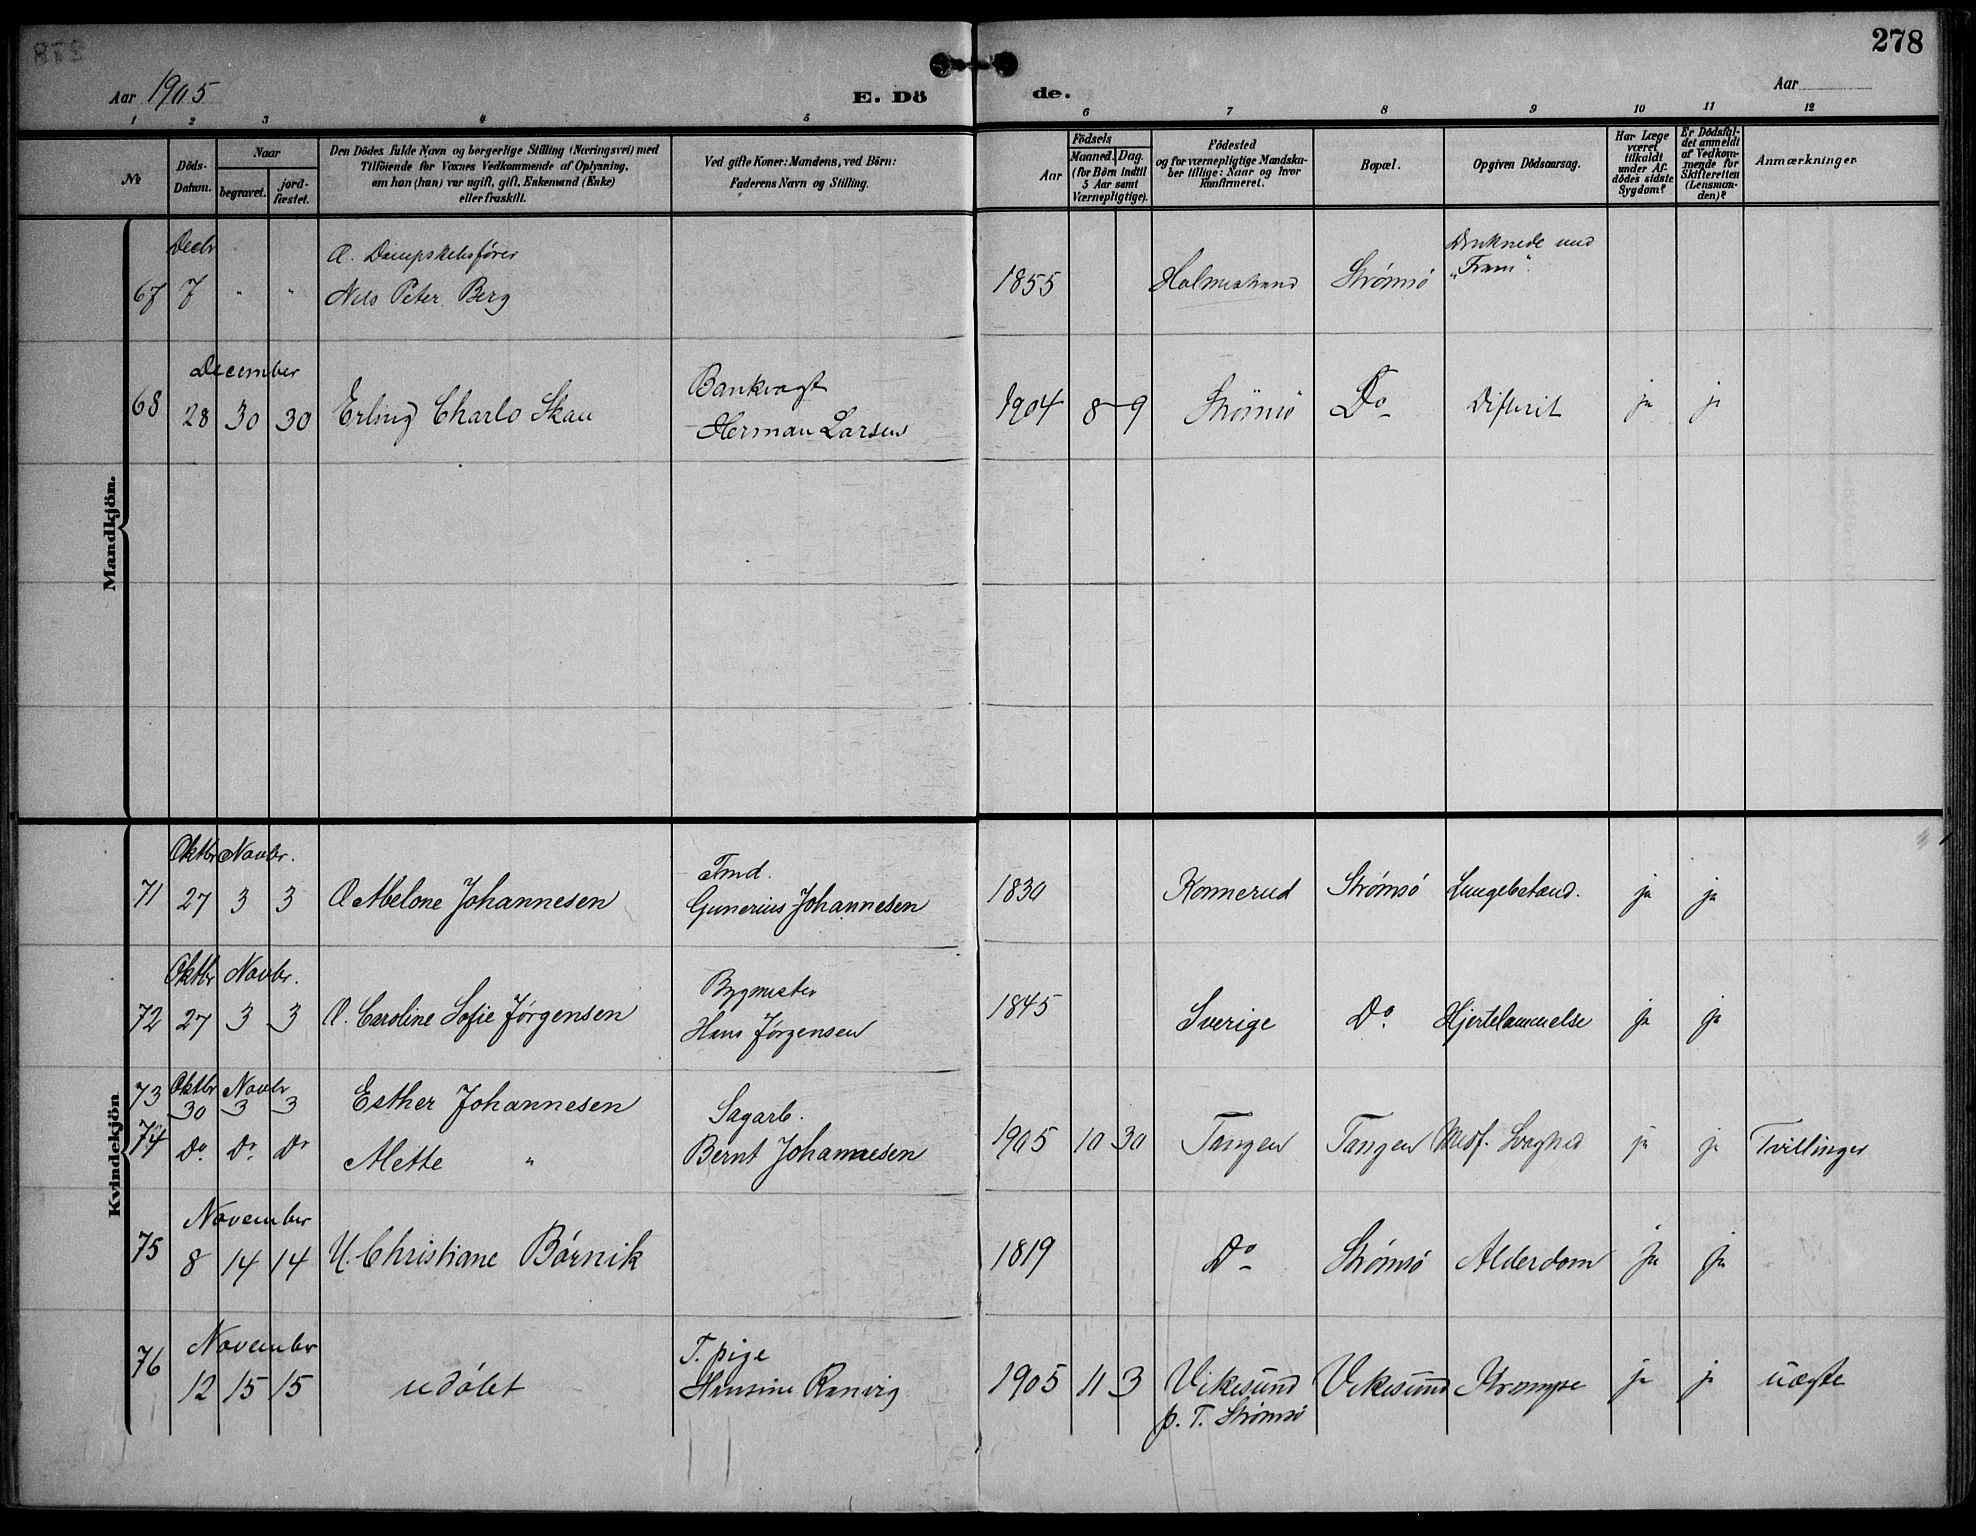 278
Aar 1905
E. Döde.
Aar
1 2 3 4 5 6 7 8 9 10 11 12
№
Döds-Datum.
Naar
begravet.
jord-fæstet.
Den Dödes fulde Navn og borgerlige Stilling (Næringsvei) med
Tilföiende for Voxnes Vedkommende af Oplysning,
om han (hun) var ugift, gift, Enkemand (Enke)
eller fraskilt.
Ved gifte Koner: Mandens, ved Börn:
Faderens Navn og Stilling.
Födsels
Aar
Maaned. Dag.
(for Börn indtil
5 Aar samt
Værnepligtige).
Födested
og for værnepligtige Mandska-
ber tillige: Naar og hvor
Konfirmeret.
Bopæl.
Opgiven Dödsaarsag.
Har Læge
været
tilkaldt
under Af-
dödes sidste
Sygdom?
Er Dödsfal-
det anmeldt
af Vedkom-
mende for
Skifteretten
(Lensman-
den)?
Anmærkninger
Mandkjön.
Decbr
67 7 " "
Dampskibsfører
Nils Peter Berg
1855
Holmestrand
Strømsø
Druknede med
"Fram".
December
68 28 30 30
Erling Charlo Skau
Bankvagt
Herman Larsen
1904 8 9
Strömsö
Do
Difterit
ja ja
Kvindekjön
Oktbr Novbr.
71 27 3 3
Abelone Johannesen
Tmd.
Gunerius Johannesen
1830
Konnerud
Strømsø
Lungebetænd.
ja ja
Oktbr Novbr.
72 27 3 3
Caroline Sofie Jørgensen
Bygmester
Hans Jørgensen
1845
Sverige
Do
Hjertelammelse
ja ja
Oktbr Novbr
73 30 3 3
Esther Johannesen
74 Do. Do. Do
Mette "
Sagarb.
Bernt Johannesen
1905 10 30
Tangen
Tangen
Medf. Svaghed
ja ja
Tvillinger
November
75 8 14 14
U. Christiane Børnik
1819
Do
Strømsø
Alderdom
ja ja
November
76 12 15 15
udøbt
T. pige
Hansine Ranvig
1905 11 3
Vikesund
p. T. Strømsø
Vikesund
Krampe
ja ja
uægte